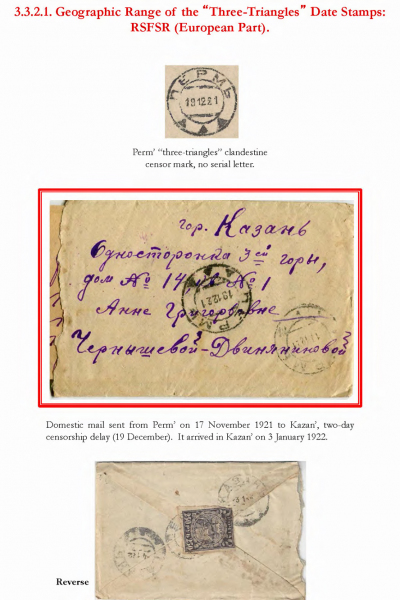 3.3.2.1. Geographic Range of the “Three-Triangles” Date Stamps:
RSFSR (European Part).
ПЕРМЬ
19 12 21
Perm’ “three-triangles” clandestine
censor mark, no serial letter.
гор. Казань
Односторонка 3ей горы,
дом № 14, кв № 1
Анне Григорьевне
Чернышевой-Двиняниновой
19 12 21
ПЕРМЬ
Domestic mail sent from Perm’ on 17 November 1921 to Kazan’, two-day
censorship delay (19 December). It arrived in Kazan’ on 3 January 1922.
Reverse